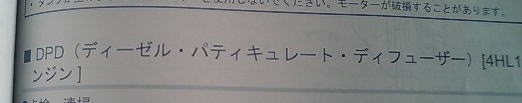 使用しないでください。モーターが破損することがあります。
■DPD（ディーゼル・パティキュレート・ディフューザー）[4HL1
ンジン]